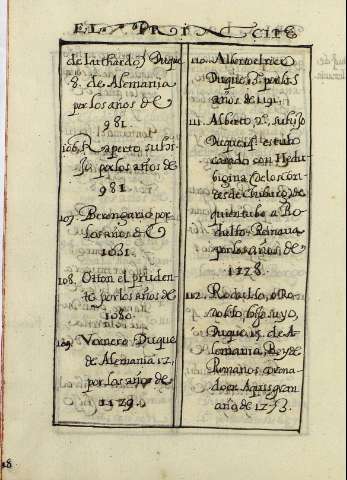 EL PRINCIPE
de luthardo, Duque
8. de Alemania
por los años de
981.
106. Raperto, su hijo
por los años de
981
107. Berengario por
los años de
1031.
108. Otton el pruden-
te por los años de
1080.
109. Vernero Duque
de Alemania 12,
por los años de
1129.
110. Alberto el rico
Duque por los
años de 1191.
111. Alberto 2º, su hijo
Duque estubo
casado con Hedu-
bigina (de los con-
des de Chiburg) de
quien tubo a Ro-
dulfo. Reinaua
por los años de
1228.
112. Rodulfo, o Ro-
nolfo, hijo suyo,
Duque 15. de A-
lemania, Rey de
Rumanos corona-
do en Aquisgran
año de 1273.